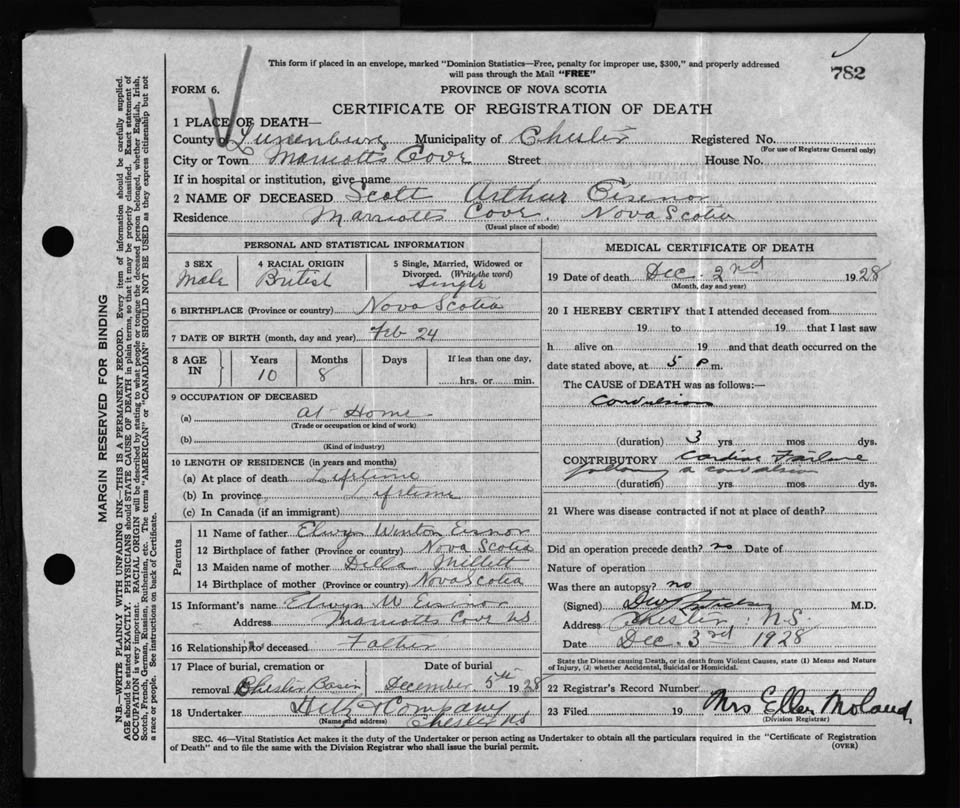 This form if placed in an envelope, marked "Dominion Statistics—Free, penalty for improper use, $300," and properly addressed
will pass through the Mail "FREE"
782
FORM 6.
PROVINCE OF NOVA SCOTIA
CERTIFICATE OF REGISTRATION OF DEATH
1 PLACE OF DEATH—
County of Lunenburg Municipality of Chester Registered No.
(For use of Registrar General only)
City or Town Marriotts Cove Street House No.
If in hospital or institution, give name
2 NAME OF DECEASED Scott Arthur Eisnor
Residence Marriotts Cove. Nova Scotia
(Usual place of abode)
PERSONAL AND STATISTICAL INFORMATION
3 SEX
Male
4 RACIAL ORIGIN
British
5 Single, Married, Widowed or
Divorced. (Write the word)
Single
6 BIRTHPLACE (Province or country) Nova Scotia
7 DATE OF BIRTH (month, day and year) Feb 24
8 AGE IN
Years Months Days If less than one day,
10 8 hrs. or min.
9 OCCUPATION OF DECEASED
(a) at Home
(Trade or occupation or kind of work)
(b)
(Kind of industry)
10 LENGTH OF RESIDENCE (in years and months)
(a) At place of death Lifetime
(b) In province Lifetime
(c) In Canada (if an immigrant)
Parents
11 Name of father Elwyn Winton Eisnor
12 Birthplace of father (Province or country) Nova Scotia
13 Maiden name of mother Della Millett
14 Birthplace of mother (Province or country) Nova Scotia
15 Informant's name Elwyn W Eisnor
Address Marriotts Cove NS
16 Relationship to deceased Father
17 Place of burial, cremation or
removal Chester Basin
Date of burial
December 5th 1928
18 Undertaker & Company
(Name and address) Chester NS
MEDICAL CERTIFICATE OF DEATH
19 Date of death Dec. 2nd 1928
(Month, day and year)
20 I HEREBY CERTIFY that I attended deceased from
19 to 19 that I last saw
h alive on 19 and that death occurred on the
date stated above, at 5 P m.
The CAUSE of DEATH was as follows:—
Convulsions
(duration) 3 yrs. mos. dys.
CONTRIBUTORY Cardiac Failure
following a convulsion
(duration) yrs. mos. dys.
21 Where was disease contracted if not at place of death?
Did an operation precede death? no Date of
Nature of operation
Was there an autopsy? no
(Signed) M.D.
Address Chester N.S.
Date Dec. 3rd 1928
State the Disease causing Death, or in death from Violent Causes, state (1) Means and Nature
of Injury, (2) whether Accidental, Suicidal or Homicidal.
22 Registrar's Record Number
23 Filed 19 Mrs Ellen Moland
(Division Registrar)
SEC. 46—Vital Statistics Act makes it the duty of the Undertaker or person acting as Undertaker to obtain all the particulars required in the "Certificate of Registration
of Death" and to file the same with the Division Registrar who shall issue the burial permit.
(OVER)
MARGIN RESERVED FOR BINDING
N.B.—WRITE PLAINLY WITH UNFADING INK—THIS IS A PERMANENT RECORD. Every item of information should be carefully supplied.
AGE should be stated EXACTLY. PHYSICIANS should STATE CAUSE OF DEATH in plain terms, so that it may be properly classified. Exact statement of
OCCUPATION is very important. RACIAL ORIGIN will be described by stating to what people or tongue the deceased person belonged, whether English, Irish,
Scotch, French, German, Russian, Ruthenian, etc. The terms "AMERICAN" or "CANADIAN" SHOULD NOT BE USED as they express citizenship but not
a race or people. See instructions on back of Certificate.